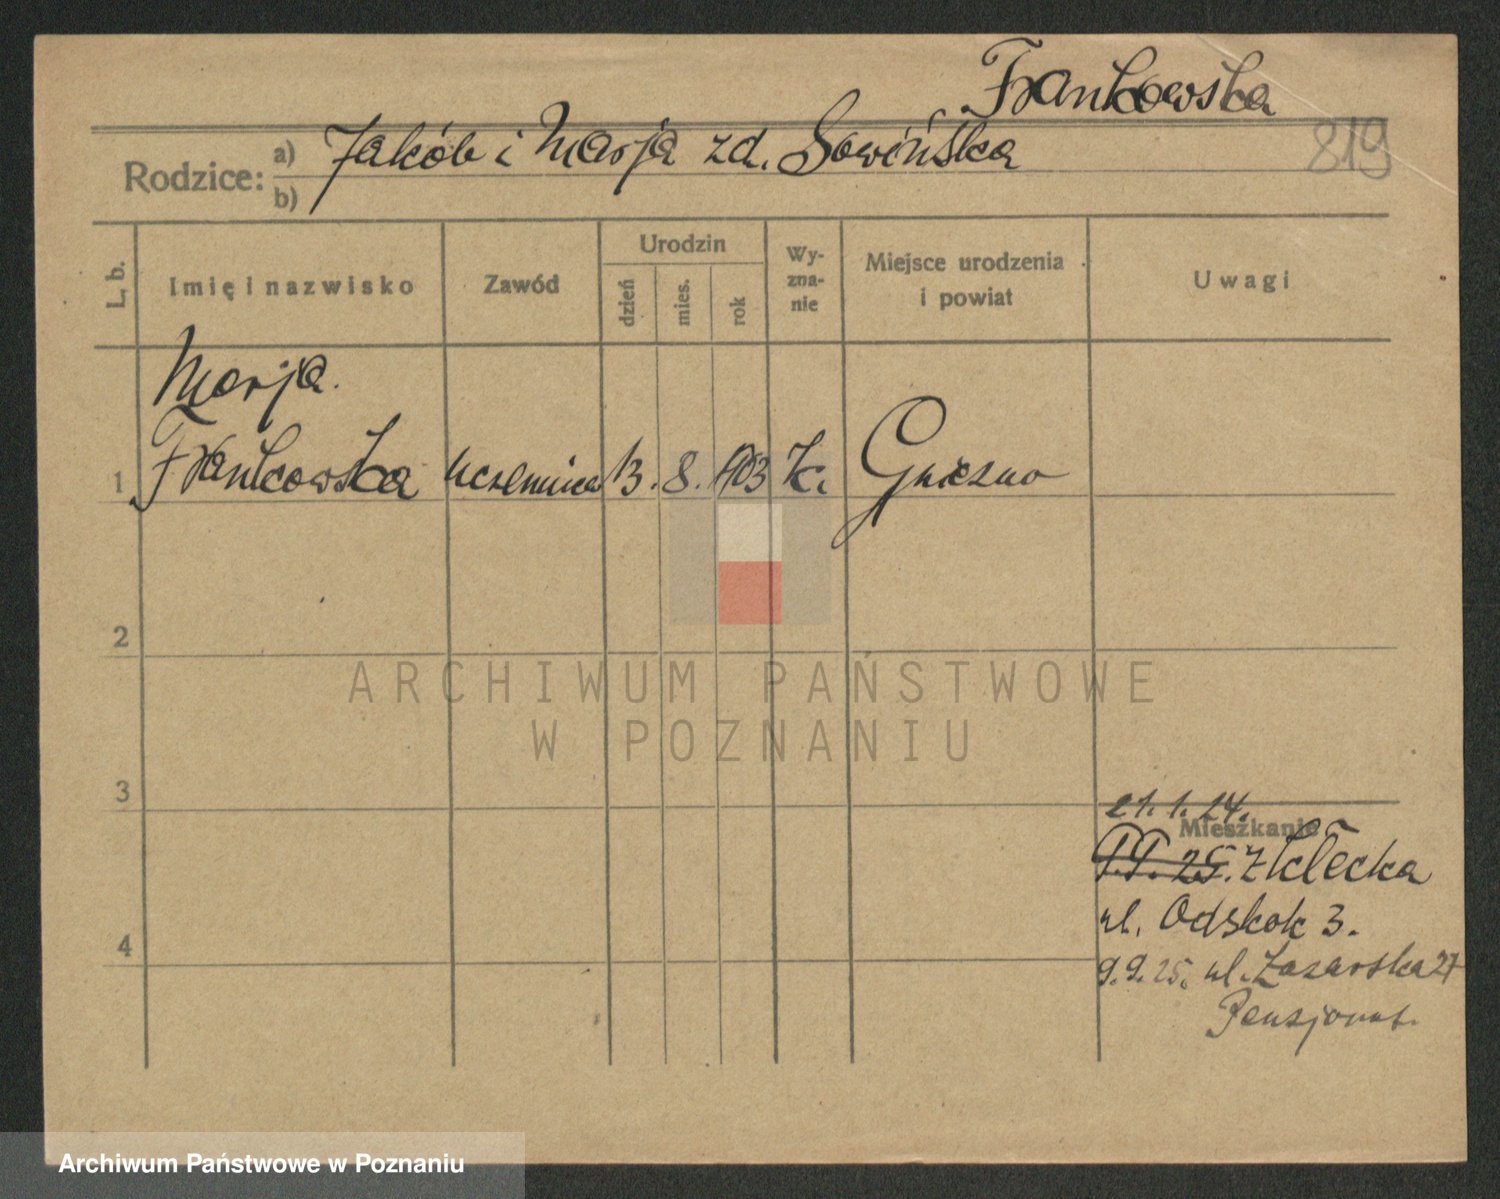 Frankowska
819
Rodzice: a) Jakób i Marja zd. Sowińska
b)
L. b.
Imię i nazwisko
Zawód
Urodzin
dzień
mies.
rok
Wy-
zna-
nie
Miejsce urodzenia
i powiat
Uwagi
Marja.
1 Frankowska uczennica 13. 8. 903 k. Gniezno
2
ARCHIWUM PAŃSTWOWE
W POZNANIU
3
21.1.24.
Mieszkanie
9.9.25. z Kłecka
ul. Odskok 3.
9.9.25. ul. Łazarska 27
4
Pensjonat.
Archiwum Państwowe w Poznaniu